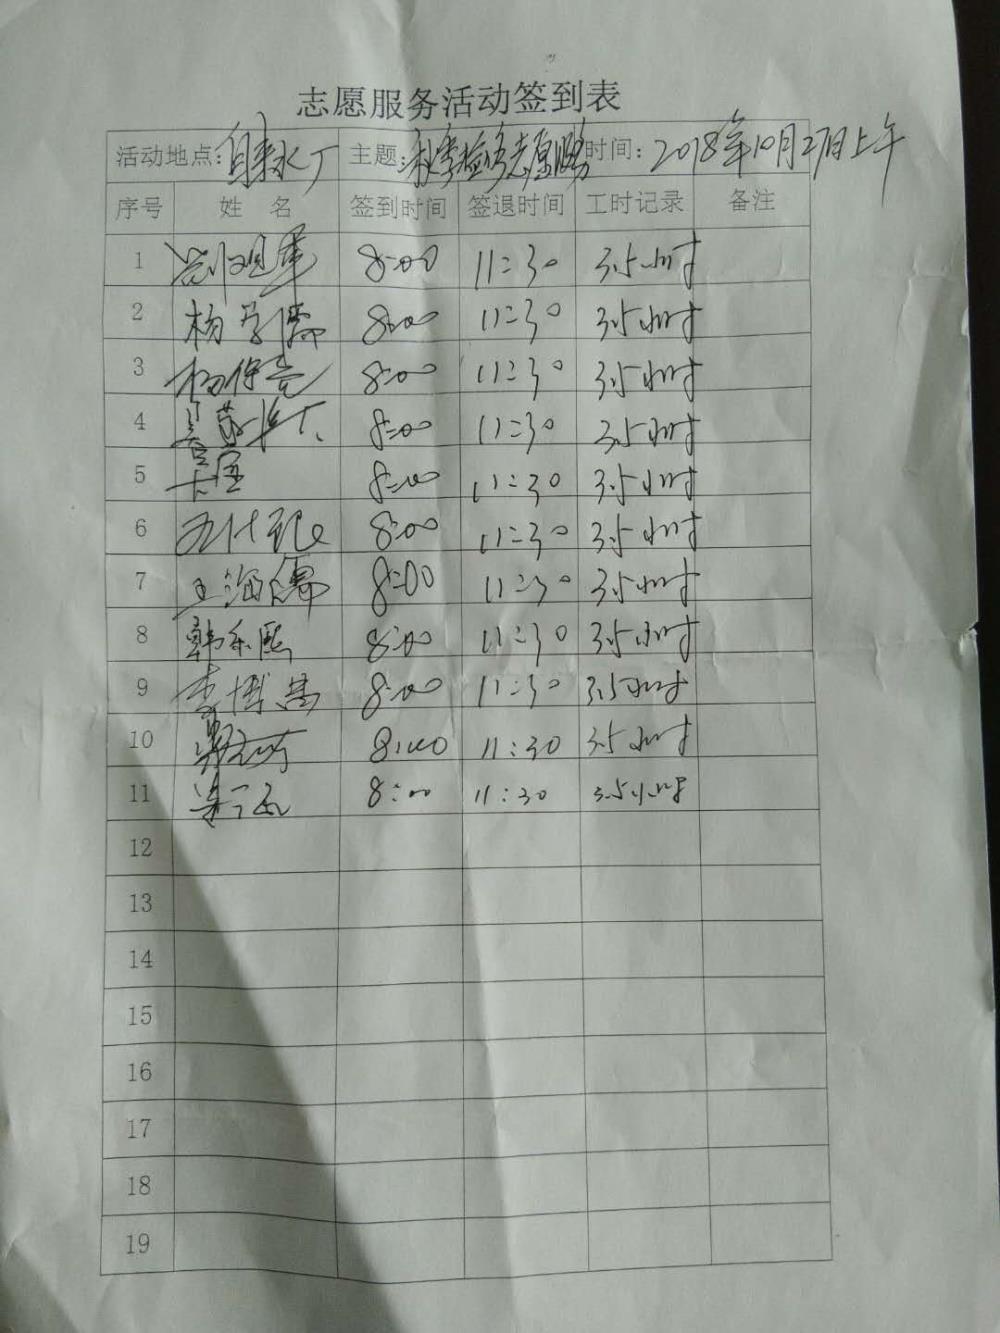 志愿服务活动签到表
活动地点：自来水厂 主题：秋季检修志愿服务 时间：2018年10月27日上午
序号 姓名 签到时间 签退时间 工时记录 备注
1 8:00 11:30 3.5小时
2 杨学儒 8:00 11:30 3.5小时
3 杨保亮 8:00 11:30 3.5小时
4 8:00 11:30 3.5小时
5 8:00 11:30 3.5小时
6 8:00 11:30 3.5小时
7 王海儒 8:00 11:30 3.5小时
8 韩东熙 8:00 11:30 3.5小时
9 李博 8:00 11:30 3.5小时
10 8:00 11:30 3.5小时
11 8:00 11:30 3.5小时
12
13
14
15
16
17
18
19